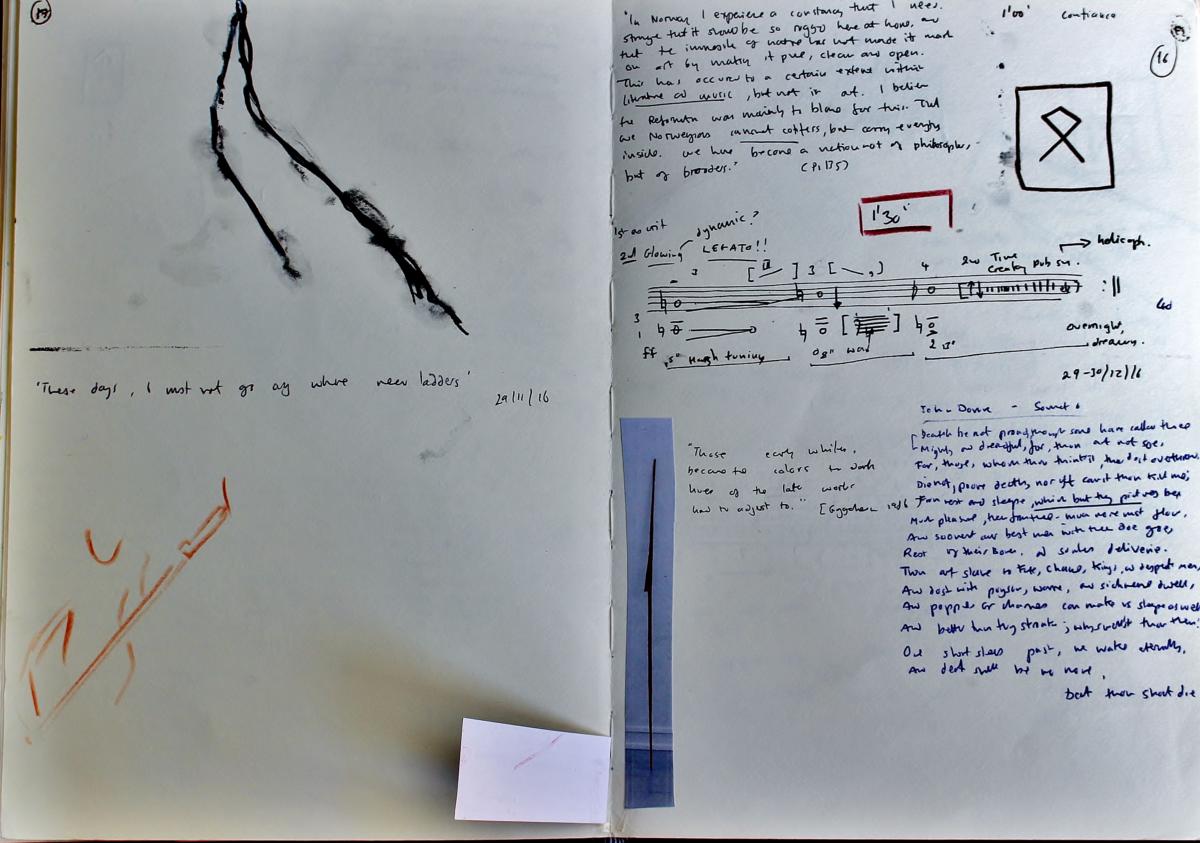 "In Norway I experience a constancy that I need.
strange that it should be so rugged here at home, and
that the of nature has not made its mark
on art by making it pure, clean and open.
This has occurred to a certain extent within
literature and music, but not in art. I believe
the Reformation was mainly to blame for this. That
we Norwegians cannot, but carry everything
inside. we have become a nation not of philosophers,
but of brooders." (P.175)
1'00"
16
1'30"
1st as writ
dynamic?
2nd Glowing
LEGATO!!
3
3
4
2nd Time
3
1
ff
5" Harsh tuning
overnight,
drawn.
29-30/12/16
'These days, I must not go any where near ladders'
29/11/16
"Those early whites,
became the colors the dark
hues of the late works
had to adjust to." [
John Donne - Sonnet 6
Death be not proud, though some have called thee
Mighty and dreadfull, for, thou art not soe,
For, those, whom thou think'st, thou dost overthrow,
Die not, poore death, nor yet canst thou kill me;
From rest and sleepe, which but thy pictures bee
Much pleasure, then from thee much more must flow,
And soonest our best men with thee doe goe,
Rest of their bones, and soules deliverie.
Thou art slave to Fate, Chance, Kings, and desperate men,
And dost with poyson, warre, and sicknesse dwell,
And poppie or charmes can make us sleepe as well
And better than thy stroake; why swell'st thou then?
One short sleepe past, we wake eternally,
And death shall be no more,
Death thou shalt die